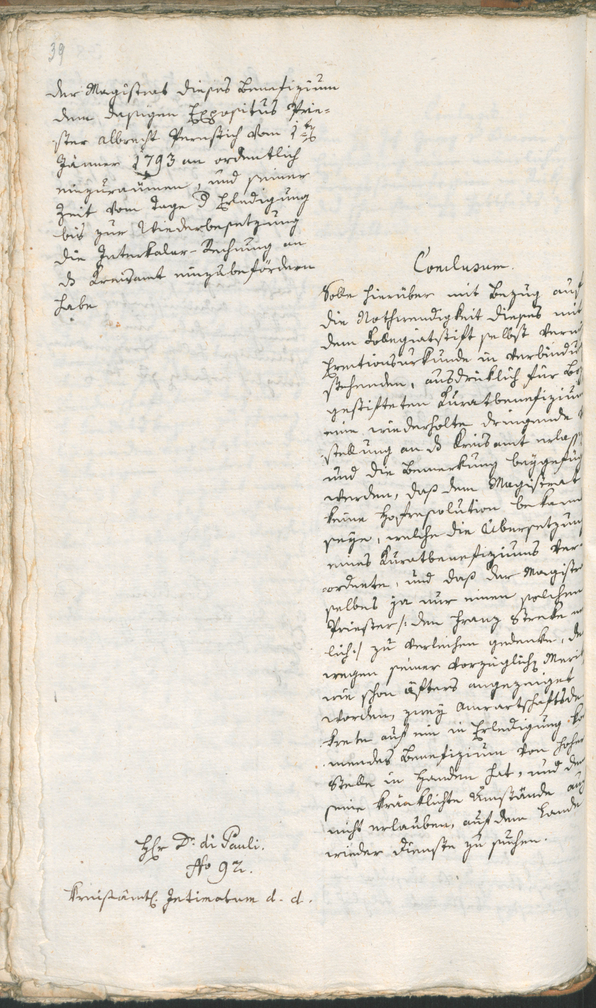 39
der Magistrat dieses Benefizium
dem dasigen Expositus Prie-
ster Albrecht Pernstich vom 1ten
Jänner 1793 an ordentlich
einzuraümen, und seiner
Zeit vom Tage d Erledigung
bis zur Wiederbesetzung
die Interkalar-Rechnung an
ds Kreisamt einzubefördern
habe
Conclusum.
Solle hierüber mit Bezug auf
die Nothwendigkeit dieses mit
dem Kollegiatstift selbst verm
Erectionsurkunde in Verbindu
stehenden, ausdrücklich für Bo
gestifteten Kuratbenefizium
eine wiederholte dringende
stellung an ds Kreisamt erlass
und die Bemerkung beygefüg
werden, daß dem Magistrat
keine Hofresolution bekann
seye, welche die Übersetzun
eines Kuratbenefiziums ver-
ordnete, und daß der Magistr
selbes ja nur einem solchen
Priester /: dem Franz Strobl
lich :/ zu verleihen gedenke, de
wegen seiner vorzüglich Merit
wie schon öfters angezeiget
worden, zwey Anwartschaftsde-
krete auf ein in Erledigung ko
mendes Benefizium von hoher
Stelle in Handen hat, und de
seine kränklichte Umstände au
nicht erlauben, auf dem Lande
wieder Dienste zu suchen.
Hr Dr. di Pauli.
No 92.
Kreisämtl. Intimatum d. d.